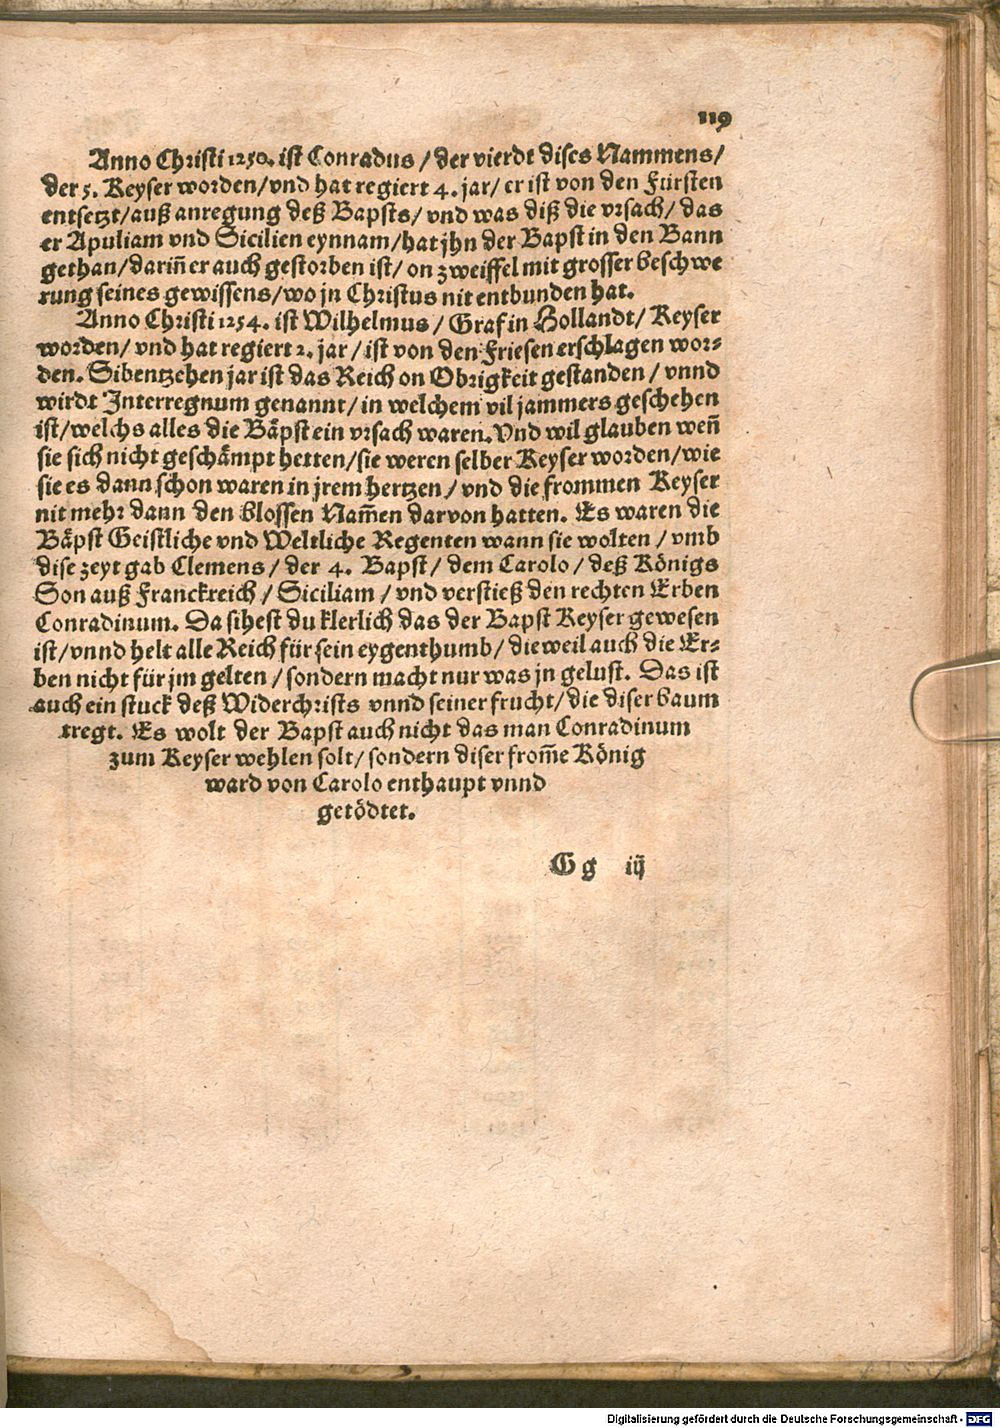 119
Anno Christi 1250. ist Conradus / der vierdt dises Nammens /
der 5. Keyser worden / vnd hat regiert 4. jar / er ist von den Fürsten
entsetzt / auß anregung deß Bapsts / vnd was diß die vrsach / das
er Apuliam vnd Sicilien eynnam / hat jhn der Bapst in den Bann
gethan / dariñ er auch gestorben ist / on zweiffel mit grosser beschwe
rung seines gewissens / wo jn Christus nit entbunden hat.
Anno Christi 1254. ist Wilhelmus / Graf in Hollandt / Keyser
worden / vnd hat regiert 2. jar / ist von den Friesen erschlagen wor⸗
den. Sibentzehen jar ist das Reich on Obrigkeit gestanden / vnnd
wirdt Interregnum genannt / in welchem vil jammers geschehen
ist / welchs alles die Bäpst ein vrsach waren. Vnd wil glauben weñ
sie sich nicht geschämpt hetten / sie weren selber Keyser worden / wie
sie es dann schon waren in jrem hertzen / vnd die frommen Keyser
nit mehr dann den blossen Nam̃en darvon hatten. Es waren die
Bäpst Geistliche vnd Weltliche Regenten wann sie wolten / vmb
dise zeyt gab Clemens / der 4. Bapst / dem Carolo / deß Königs
Son auß Franckreich / Siciliam / vnd verstieß den rechten Erben
Conradinum. Da sihest du klerlich das der Bapst Keyser gewesen
ist / vnnd helt alle Reich für sein eygenthumb / die weil auch die Er⸗
ben nicht für jm gelten / sondern macht nur was jn gelust. Das ist
auch ein stuck deß Widerchrists vnnd seiner frucht / die diser baum
tregt. Es wolt der Bapst auch nicht das man Conradinum
zum Keyser wehlen solt / sondern diser from̃e König
ward von Carolo enthaupt vnnd
getödtet.
Gg iij
Digitalisierung gefördert durch die Deutsche Forschungsgemeinschaft - DFG